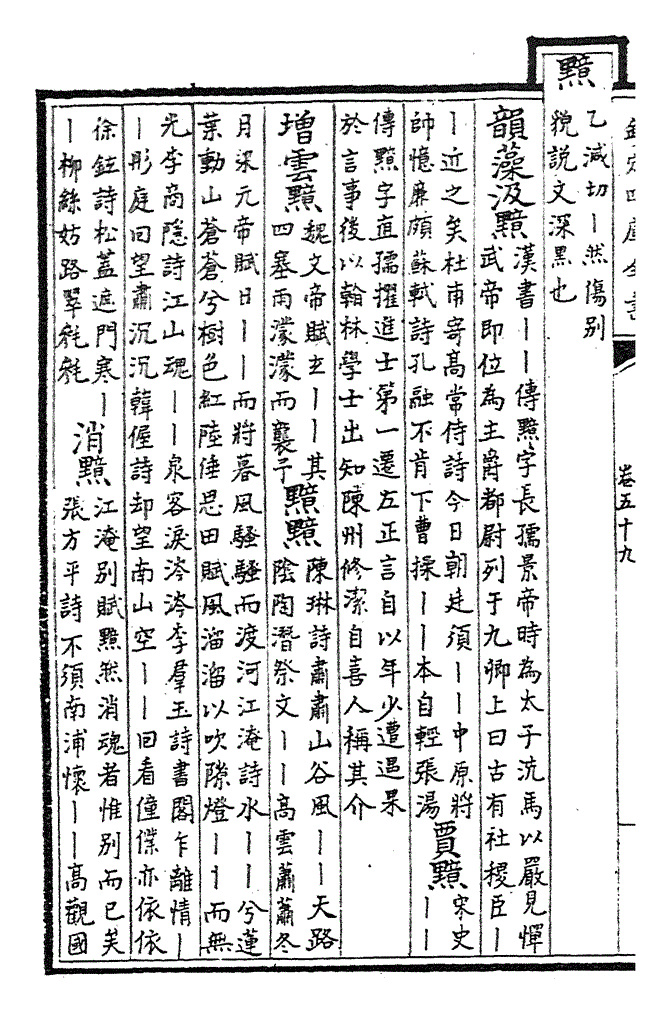 欽定四庫全書
卷五十九
黯
乙減切丨然傷別
貌說文深黑也
韻藻汲黯
漢書丨丨傳黯字長孺景帝時為太子洗馬以嚴見憚
武帝即位為主爵都尉列于九卿上曰古有社稷臣丨
丨近之矣杜甫寄高常侍詩今日朝廷須丨丨中原將
師憶廉頗蘇軾詩孔融不肯下曹操丨丨本自輕張湯
賈黯
宋史
丨丨
傳黯字直孺擢進士第一遷左正言自以年少遭遇果
於言事後以翰林學士出知陳州修潔自喜人稱其介
增雲黯
魏文帝賦玄丨丨其
四塞雨濛濛而襲予
黯黯
陳琳詩肅肅山谷風丨丨天路
陰陶潛祭文丨丨高雲蕭蕭冬
月梁元帝賦日丨丨而將暮風騷騷而渡河江淹詩水丨丨兮蓮
葉動山蒼蒼兮樹色紅陸倕思田賦風溜溜以吹隙燈丨丨而無
光李商隱詩江山魂丨丨泉客淚涔涔李羣玉詩書閣乍離情丨
丨彤庭回望肅沉沉韓偓詩却望南山空丨丨回看僮僕亦依依
徐鉉詩松蓋遮門寒丨
丨柳絲姑路翠毿毿
消黯
江淹別賦黯然消魂者惟別而已矣
張方平詩不須南浦懷丨丨高觀國